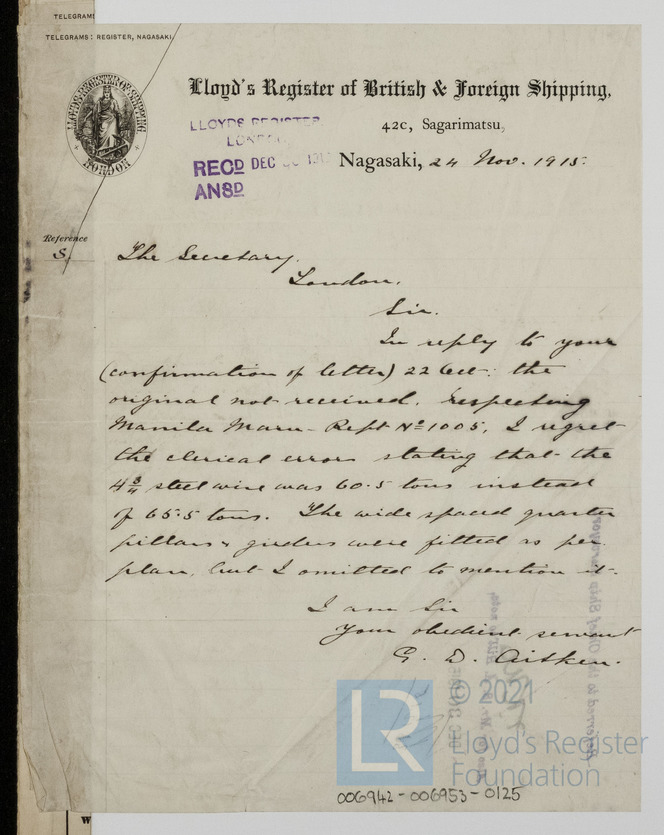 TELEGRAMS
TELEGRAMS: REGISTER, NAGASAKI.
LLOYD'S REGISTER OF SHIPPING
LONDON
Lloyd's Register of British & Foreign Shipping,
42c, Sagarimatsu,
LLOYDS REGISTER
RECD DEC
ANSD
Nagasaki, 24 Nov. 1915.
Reference
S.
The Secretary,
London.
Sir.
In reply to your
(confirmation of letter) 22 Oct: the
original not received, respecting
Manila Maru - Rept No 1005, I regret
the clerical error stating that the
4¾ steel wire was 60.5 tons instead
of 65.5 tons. The wide spaced quarter
pillars & girders were fitted as per
plan, but I omitted to mention it.
I am Sir
Your obedient servant
G. D. Aitken.
LR
© 2021
Lloyd's Register
Foundation
006942-006953-0125
W